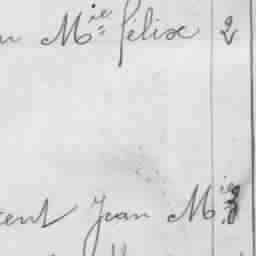 n Mie Félix 2
cent Jean Mie 3